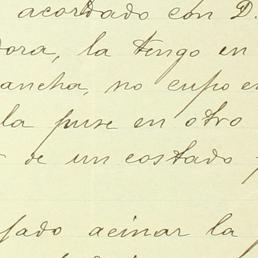 acordado con D.
dora, la tengo en
ancha, no cupo e
la puse en otro
de un costado
sado acinar la